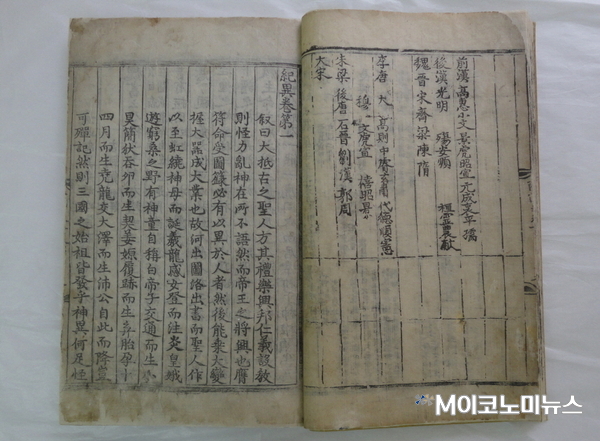 前漢 高惠小文景虎昭宣元成哀平孺
後漢光明 殤安順 桓靈農獻
魏晉宋齊梁陳隋
李唐 大 高則中睿玄肅代德順憲
穆 文虎宣
朱梁後唐石晉劉漢郭周
大宋
紀異卷第一
叙曰大抵古之聖人方其禮樂興邦仁義設教
則怪力亂神在所不語然而帝王之將興也膺
符命受圖籙必有以異於人者然後能乘大變
握大器成大業也故河出圖洛出書而聖人作
以至虹繞神母而誕羲龍感女登而注炎皇娥
遊窮桑之野有神童自稱白帝子交通而生小
昊簡狄吞卵而生契姜嫄履跡而生弃胎孕十
四月而生堯龍交大澤而生沛公自此而降豈
可殫記然則三國之始祖皆發乎神異何足怪
M이코노미뉴스